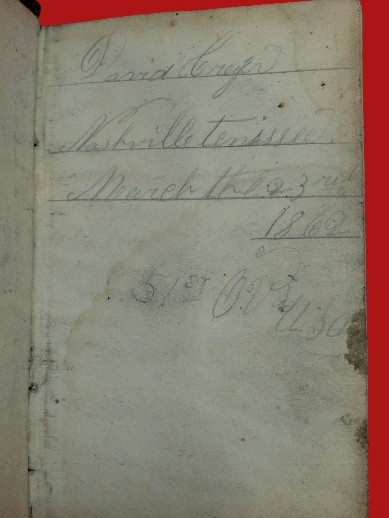 David
Nashville tenissee
March the 23rd
1862
51st O.V.I
U.S.A